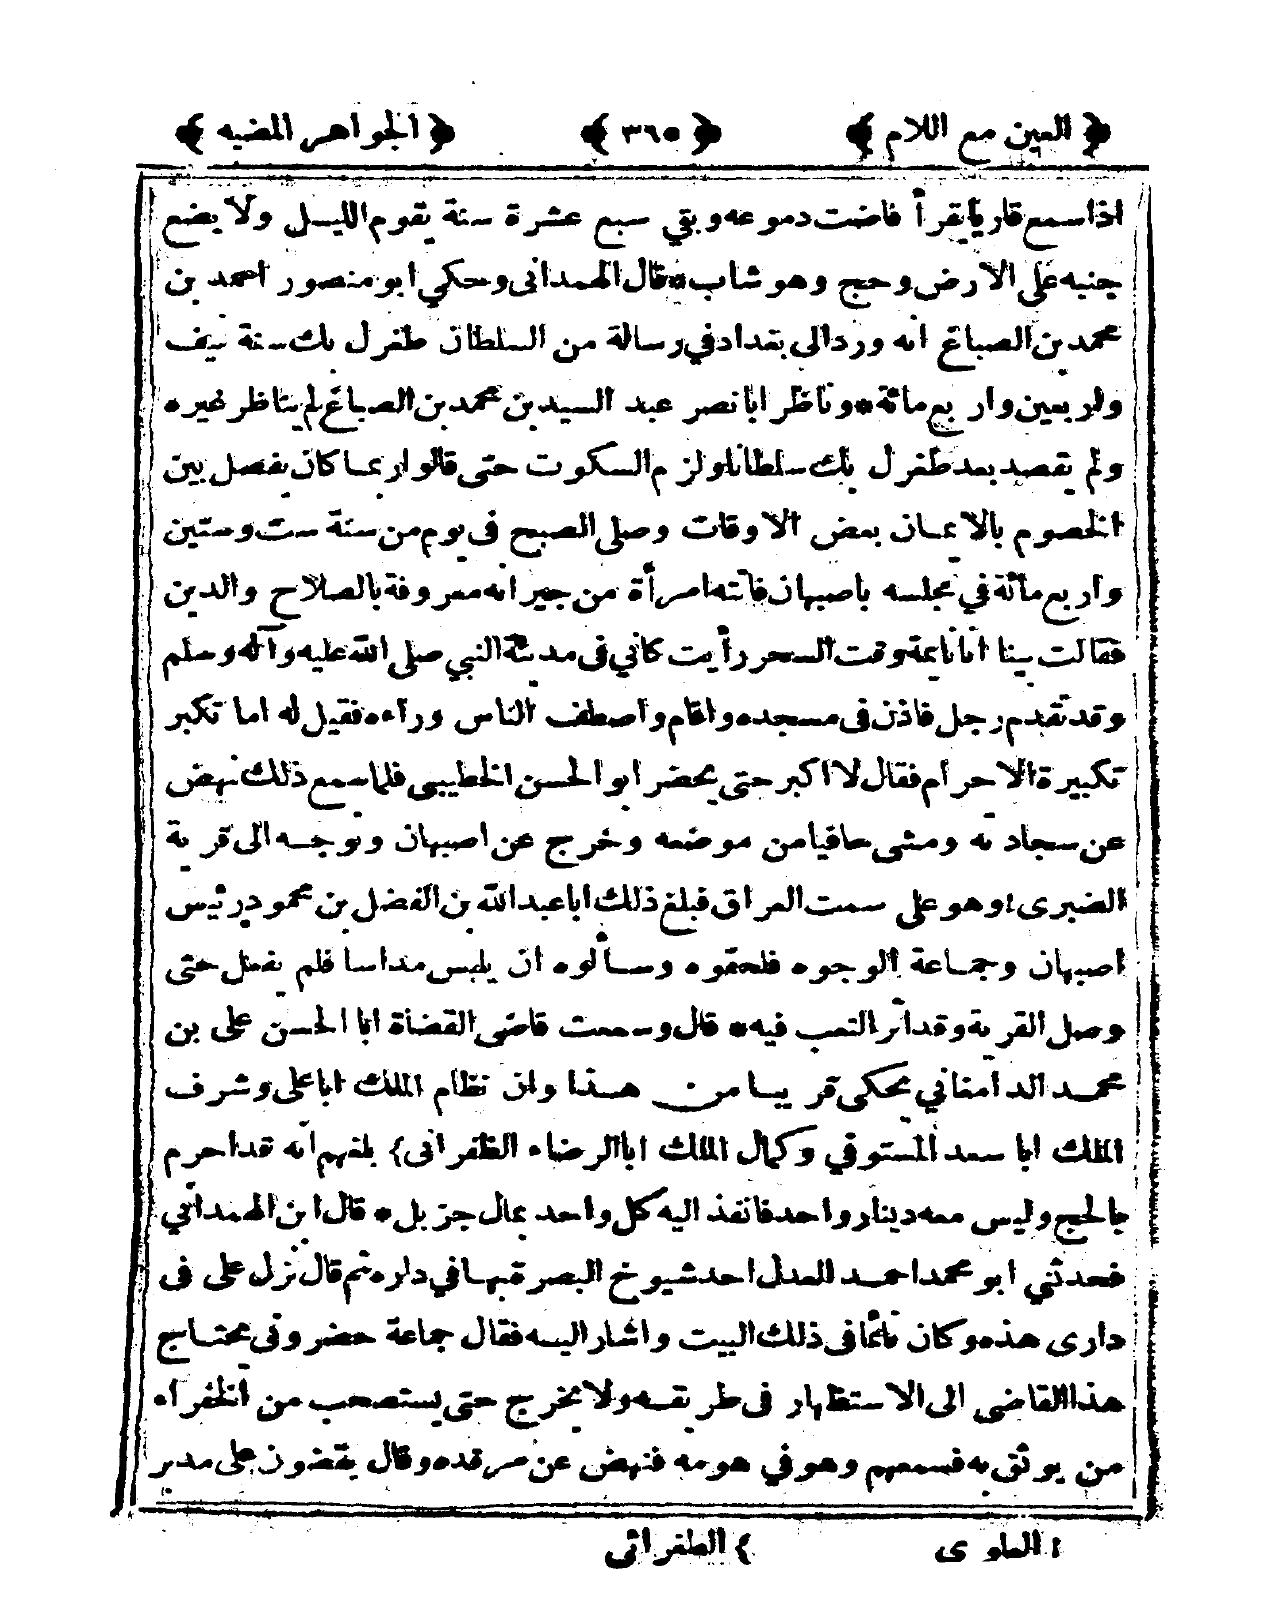 ﴿ العين مع اللام ﴾ ﴿ ٣٦٥ ﴾ ﴿ الجواهر المضيه ﴾
اذا سمع قاريا يقرأ فاضت دموعه وبقي سبع عشرة سنة يقوم الليل ولا يضع
جنبه على الارض وحج وهو شاب * قال الهمدانى وحكي ابو منصور احمد بن
محمد بن الصباغ انه ورد الى بغداد في رسالة من السلطان طغرل بك سنة نيف
واربعين واربع مائة * وناظر ابا نصر عبد السيد بن محمد بن الصباغ لم يناظر غيره
ولم يقصد بعد طغرل بك سلطانا ولزم السكوت حتى قالوا ربما كان يفصل بين
الخصوم بالايمان بعض الاوقات وصلى الصبح فى يوم من سنة ست وستين
واربع مائة في مجلسه باصبهان فاتته امرأة من جيرانه معروفة بالصلاح والدين
فقالت بينا انا نايمة وقت السحر رأيت كاني فى مدينة النبي صلى الله عليه وآله وسلم
وقد تقدم رجل فاذن فى مسجده واقام واصطف الناس ورآءه فقيل له اما تكبر
تكبيرة الاحرام فقال لا اكبر حتى يحضر ابو الحسن الخطيبى فلما سمع ذلك نهض
عن سجادته ومشى حافيا من موضعه وخرج عن اصبهان وتوجه الى قرية
الضبرى ١ وهو على سمت العراق فبلغ ذلك ابا عبد الله بن الفضل بن محمود رئيس
اصبهان وجماعة الوجوه فلحقوه وسألوه ان يلبس مداسا فلم يفعل حتى
وصل القرية وقد اثر التعب فيه * قال وسمعت قاضى القضاة ابا الحسن على بن
محمد الدامغاني يحكى قريبا من هذا وان نظام الملك ابا على وشرف
الملك ابا سعد المستوفي وكمال الملك ابا الرضاء الظفرانى ﴾ بلغهم انه قد احرم
بالحج وليس معه دينار واحد فانفذ اليه كل واحد بمال جزيل * قال ابن الهمدانى
فحدثني ابو محمد احمد المعدل احد شيوخ البصرة بها في داره ثم قال نزل على فى
دارى هذه وكان نائما فى ذلك البيت واشار اليه فقال جماعة حضروني محتاج
هذا القاضى الى الاستظهار فى طريقه ولا يخرج حتى يستصحب من الخفرآء
من يوثق به فسمعهم وهو في هومه فنهض عن مرقده وقال يقضون على مدبر
١ العلوى ﴾ الطفرائى